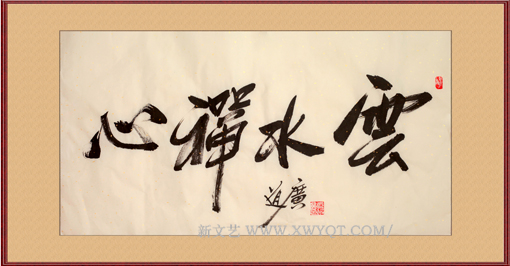 雲水禪心
廣道
新文艺 WWW.XWYOT.COM/